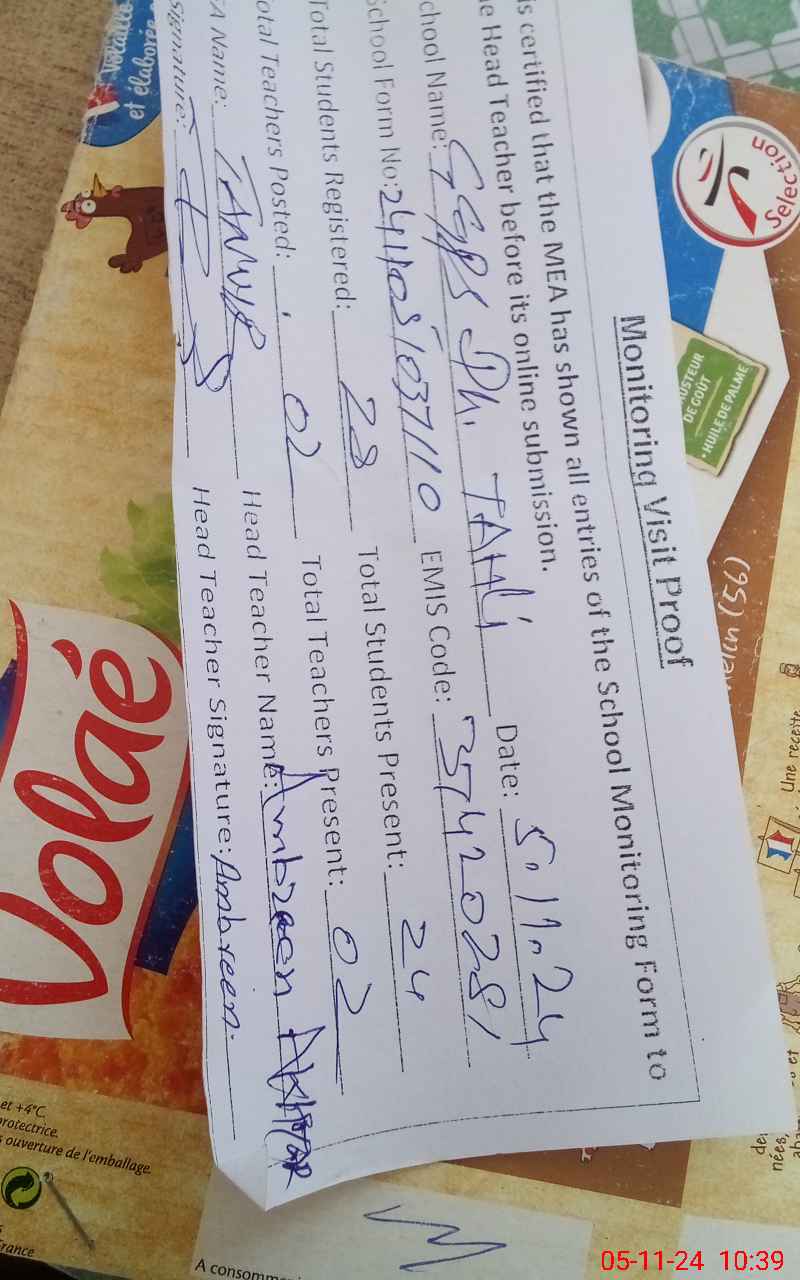 Monitoring Visit Proof
is certified that the MEA has shown all entries of the School Monitoring Form to
e Head Teacher before its online submission.
chool Name: GGPS Dh. TAHLi Date: 5.11.24
School Form No: EMIS Code: 37420281
Total Students Registered: 28 Total Students Present: 24
otal Teachers Posted: 02 Total Teachers Present: 02
EA Name: TANVIR Head Teacher Name: Ambreen AKHTAR
Signature: Head Teacher Signature: Ambreen.
Volaille
et élaborée
Selection
DE GOÛT
• HUILE DE PALME
(56)
Une recette
Volaé
et +4°C.
protectrice.
ouverture de l'emballage.
France
A consomm
05-11-24 10:39